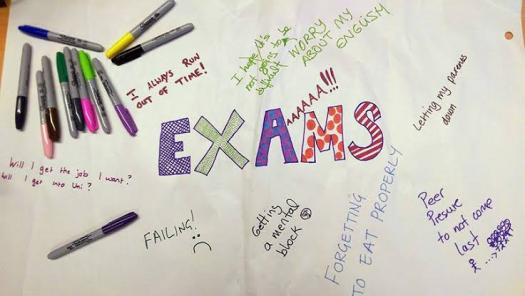 I ALWAYS RUN
OUT OF TIME!
I hope it's
not going to be
I WORRY MY
ABOUT ENGLISH
AAAAAA!!!
EXAMS
Letting my parents
down
Will I get the job I want?
Will I get into Uni?
FAILING!
Getting
a mental
block
FORGETTING
TO EAT PROPERLY
Peer
Presure
to not come
last